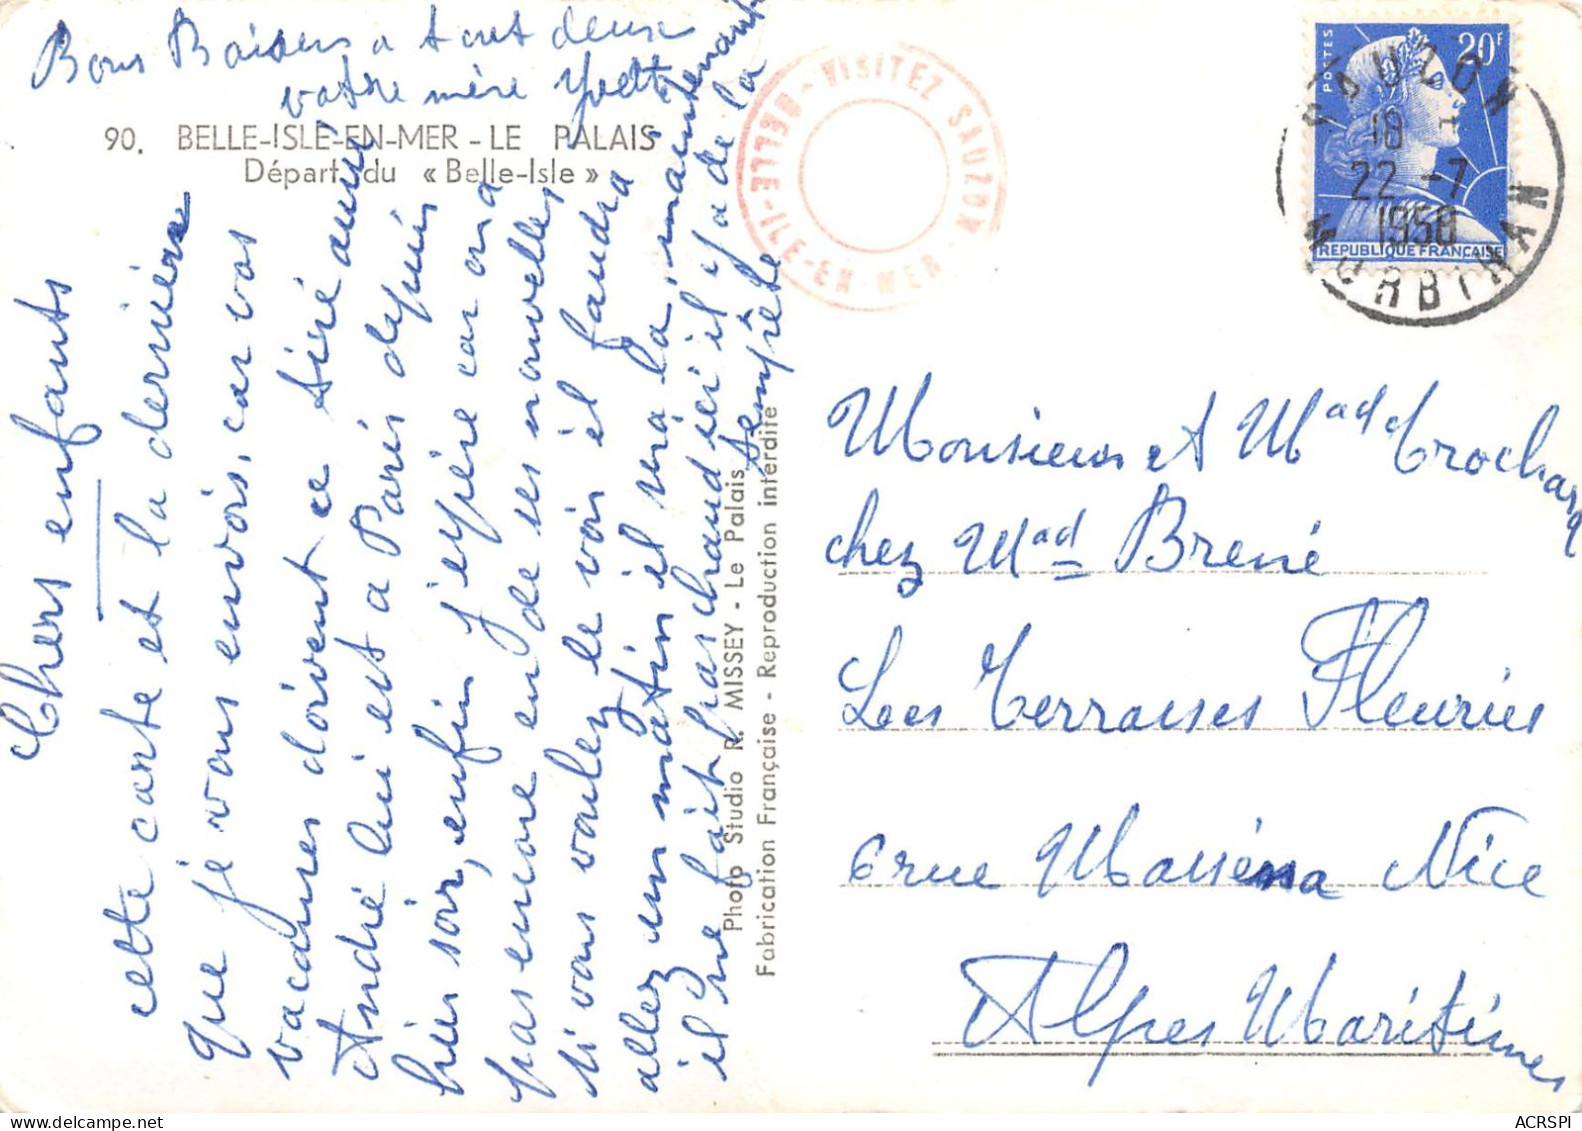 Bons Baisers a tout deux
votre mère Yvette
90. BELLE-ISLE-EN-MER - LE PALAIS
Départ du « Belle-Isle »
Chers enfants
cette carte et la dernière
que je vous envois, car vos
vacances doivent ce tiré aussi,
André lui est a Paris depuis
hier soir, enfin j'espère car on a
pas encore eu de ses nouvelles
si vous voulez le voir il faudra
allez un matin il sera là, maintenant
il ne fait pas chaud ici il y a de la
tempête
Photo Studio R. MISSEY - Le Palais
Fabrication Française - Reproduction interdite
VISITEZ SAUZON
BELLE-ILE-EN-MER
POSTES
20F
REPUBLIQUE FRANÇAISE
SAUZON
18
22 -7
1958
MORBIHAN
Monsieur et Mad Crochard
chez Mad Brené
Les Terrasses Fleuries
6 rue Masséna Nice
Alpes Maritimes
ACRSPI